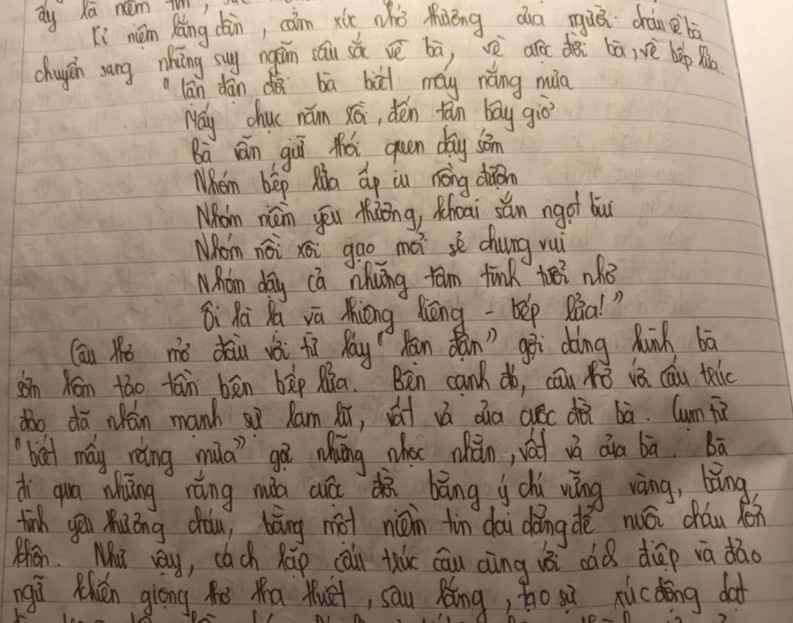 ấy là niềm tin,
Kỉ niệm lắng dần, cảm xúc nhớ thương của người cháu về bà
chuyển sang những suy ngẫm sâu sắc về bà, về cuộc đời bà, về bếp lửa.
"lận đận đời bà biết mấy nắng mưa
Mấy chục năm rồi, đến tận bây giờ
Bà vẫn giữ thói quen dậy sớm
Nhóm bếp lửa ấp iu nồng đượm
Nhóm niềm yêu thương, khoai sắn ngọt bùi
Nhóm nồi xôi gạo mới sẻ chung vui
Nhóm dậy cả những tâm tình tuổi nhỏ
Ôi kì lạ và thiêng liêng - bếp lửa!"
Câu thơ mở đầu với từ láy "lận đận" gợi dáng hình bà
sớm hôm tảo tần bên bếp lửa. Bên cạnh đó, câu thơ với cấu trúc
đảo đã nhấn mạnh sự lam lũ, vất vả của cuộc đời bà. Cụm từ
"biết mấy nắng mưa" gợi những nhọc nhằn, vất vả của bà. Bà
đi qua những nắng mưa cuộc đời bằng ý chí vững vàng, bằng
tình yêu thương cháu, bằng một niềm tin dai dẳng để nuôi cháu lớn
khôn. Như vậy, cách lặp cấu trúc câu cùng với các điệp và đảo
ngữ khiến giọng thơ tha thiết, sâu lắng, tạo sự xúc động dạt